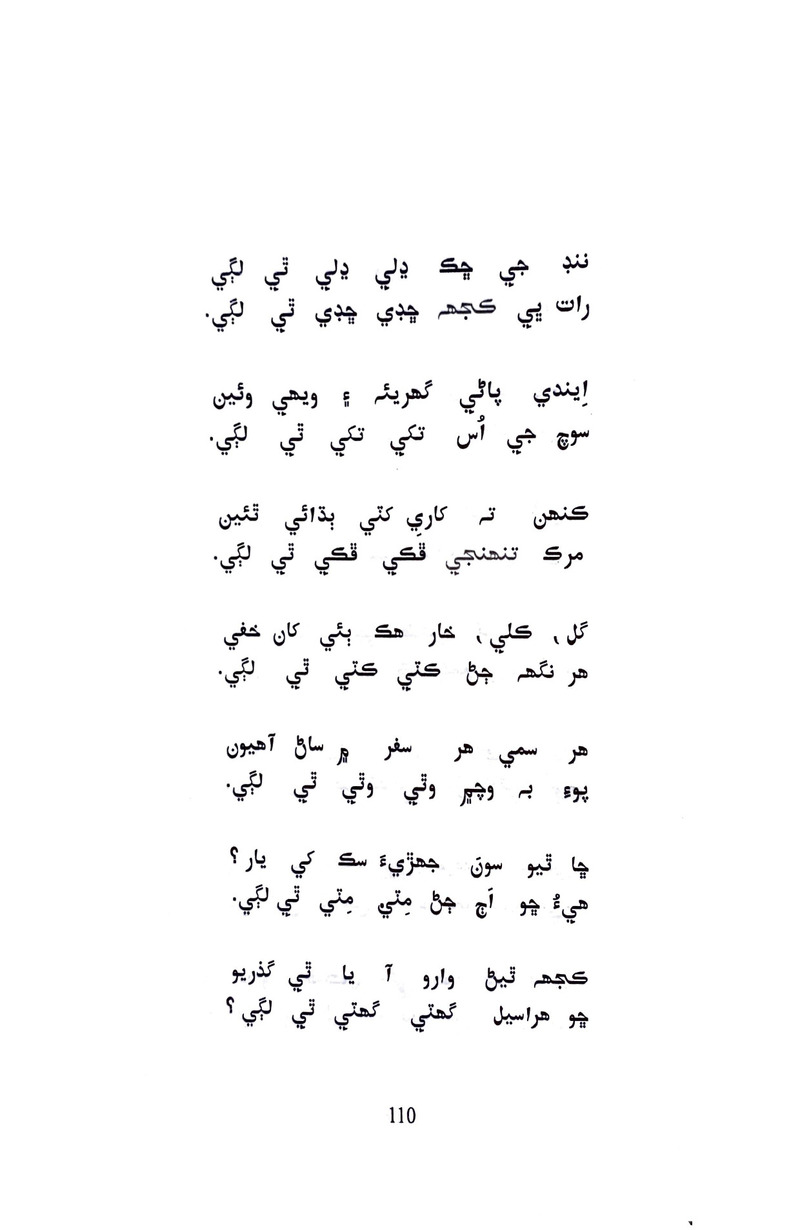 ننڊ جي ڇڪ ڍلي ڍلي ٿي لڳي
رات ڀي ڪجهہ ڇڊي ڇڊي ٿي لڳي.
اِيندي پاڻي گهريئہ ۽ ويهي وئين
سوچ جي اُس تکي تکي ٿي لڳي.
ڪنهن تہ ڪارِي کٽي ٻڌائي ٿئين
مرڪ تنهنجي ڦڪي ڦڪي ٿي لڳي.
گل، ڪلي، خار هڪ ٻئي کان خفي
هر نگهہ ڄڻ ڪٽي ڪٽي ٿي لڳي.
هر سمي هر سفر ۾ ساڻ آهيون
پوءِ بہ وڇ۾ وٿي وٿي ٿي لڳي.
ڇا ٿيو سونَ جهڙيءَ سڪ کي يار؟
هيءُ ڇو اَڄ ڄڻ مِٽي مِٽي ٿي لڳي.
ڪجهہ ٿيڻ وارو آ يا ٿي گذريو
ڇو هراسيل گهٽي گهٽي ٿي لڳي؟
110